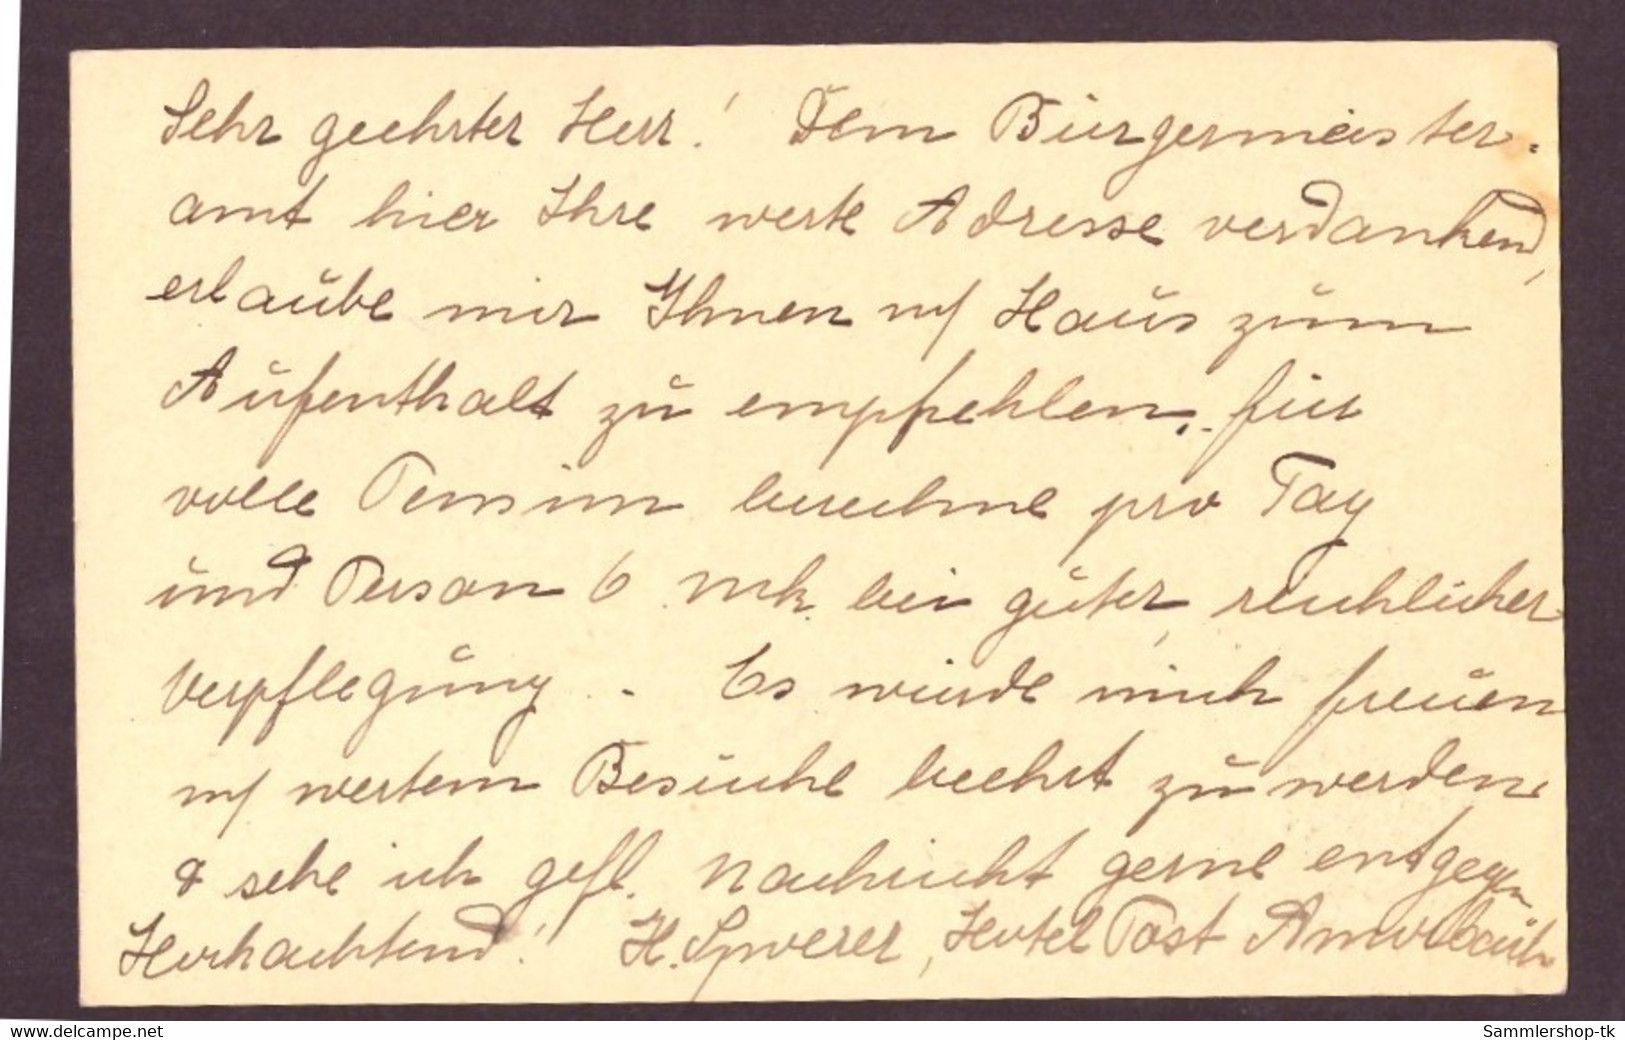 Sehr geehrter Herr! Dem Bürgermeister-
amt hier Ihre werte Adresse verdankend,
erlaube mir Ihnen m/ Haus zum
Aufenthalt zu empfehlen, für
volle Pension berechne pro Tag
und Person 6 Mk. bei guter, reichlicher
Verpflegung. - Es würde mich freuen
m/ wertem Besuche beehrt zu werden
& sehe ich gefl. Nachricht gerne entgegen
Hochachtend! H. Spoerer, Hotel Post Amorbach
www.delcampe.net
Sammlershop-tk